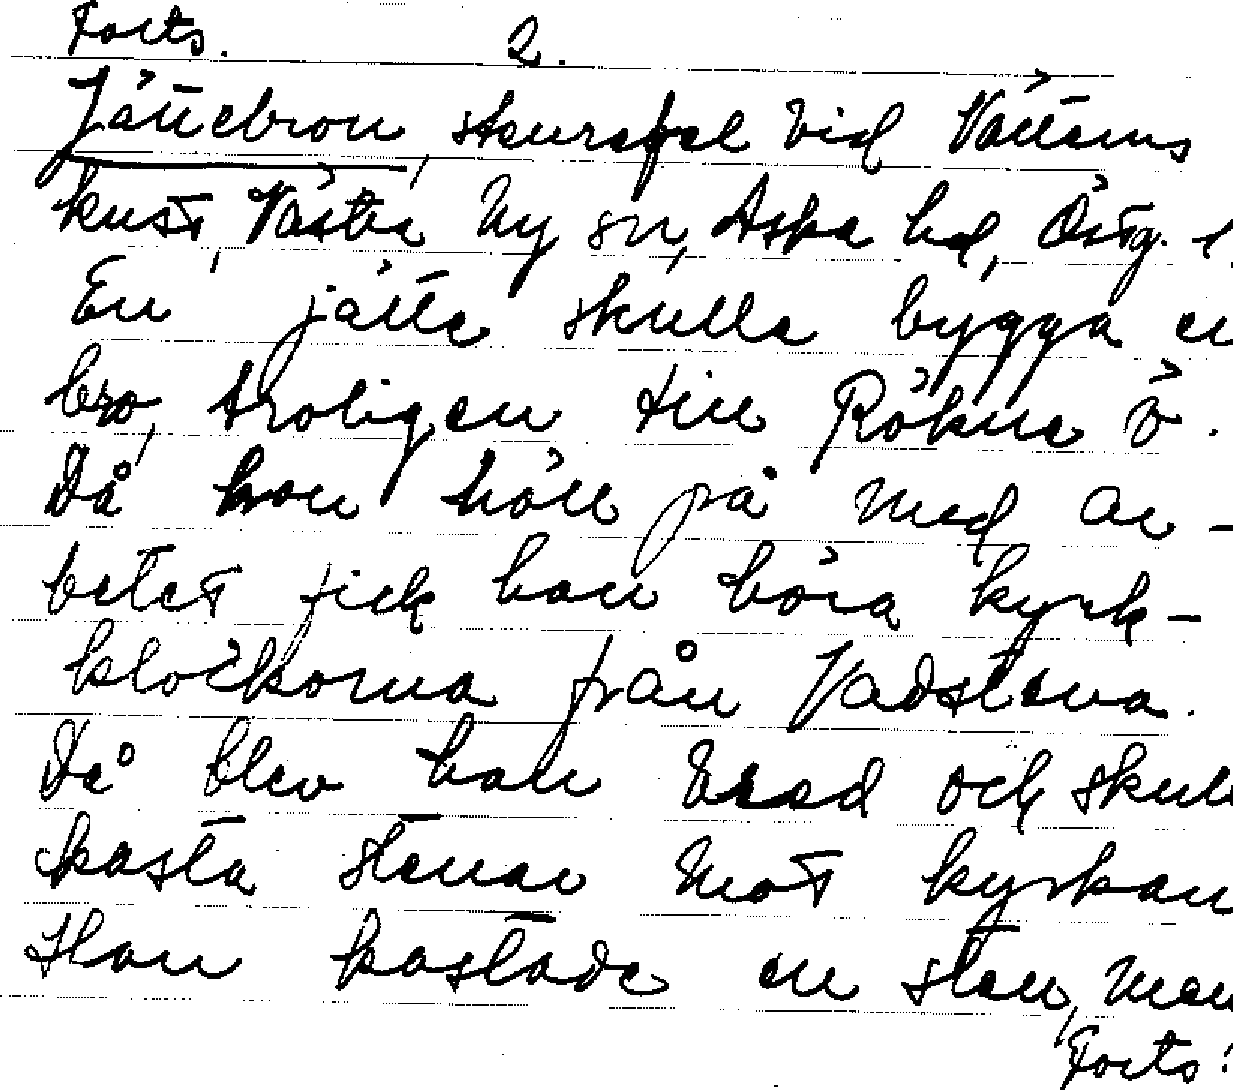 Forts. 2.
Jättebron, stenrefel vid Vätterns
kust, Västra Ny sn, Aska hd, Östg. l.
En jätte skulle bygga en
bro, troligen till Rökne ö.
Då han höll på med ar-
betet fick han höra kyrk-
klockorna från Vadstena.
Då blev han vred och skulle
kasta stenar mot kyrkan
Han kastade en sten, men
Forts.